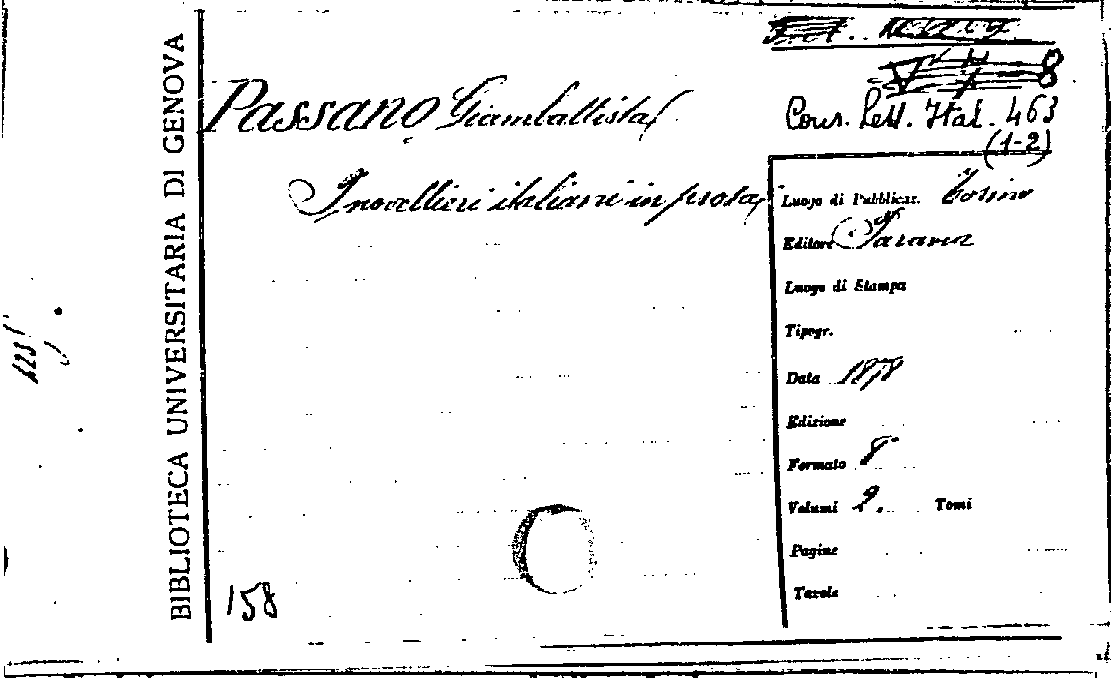 BIBLIOTECA UNIVERSITARIA DI GENOVA
Passano Giambattista
I novellieri italiani in prosa
8
Cons. Lett. Ital. 463
(1-2)
Luogo di Pubblicaz. Torino
Editore Paravia
Luogo di Stampa
Tipogr.
Data 1878
Edizione
Formato 8°
Volumi 2. Tomi
Pagine
Tavole
158